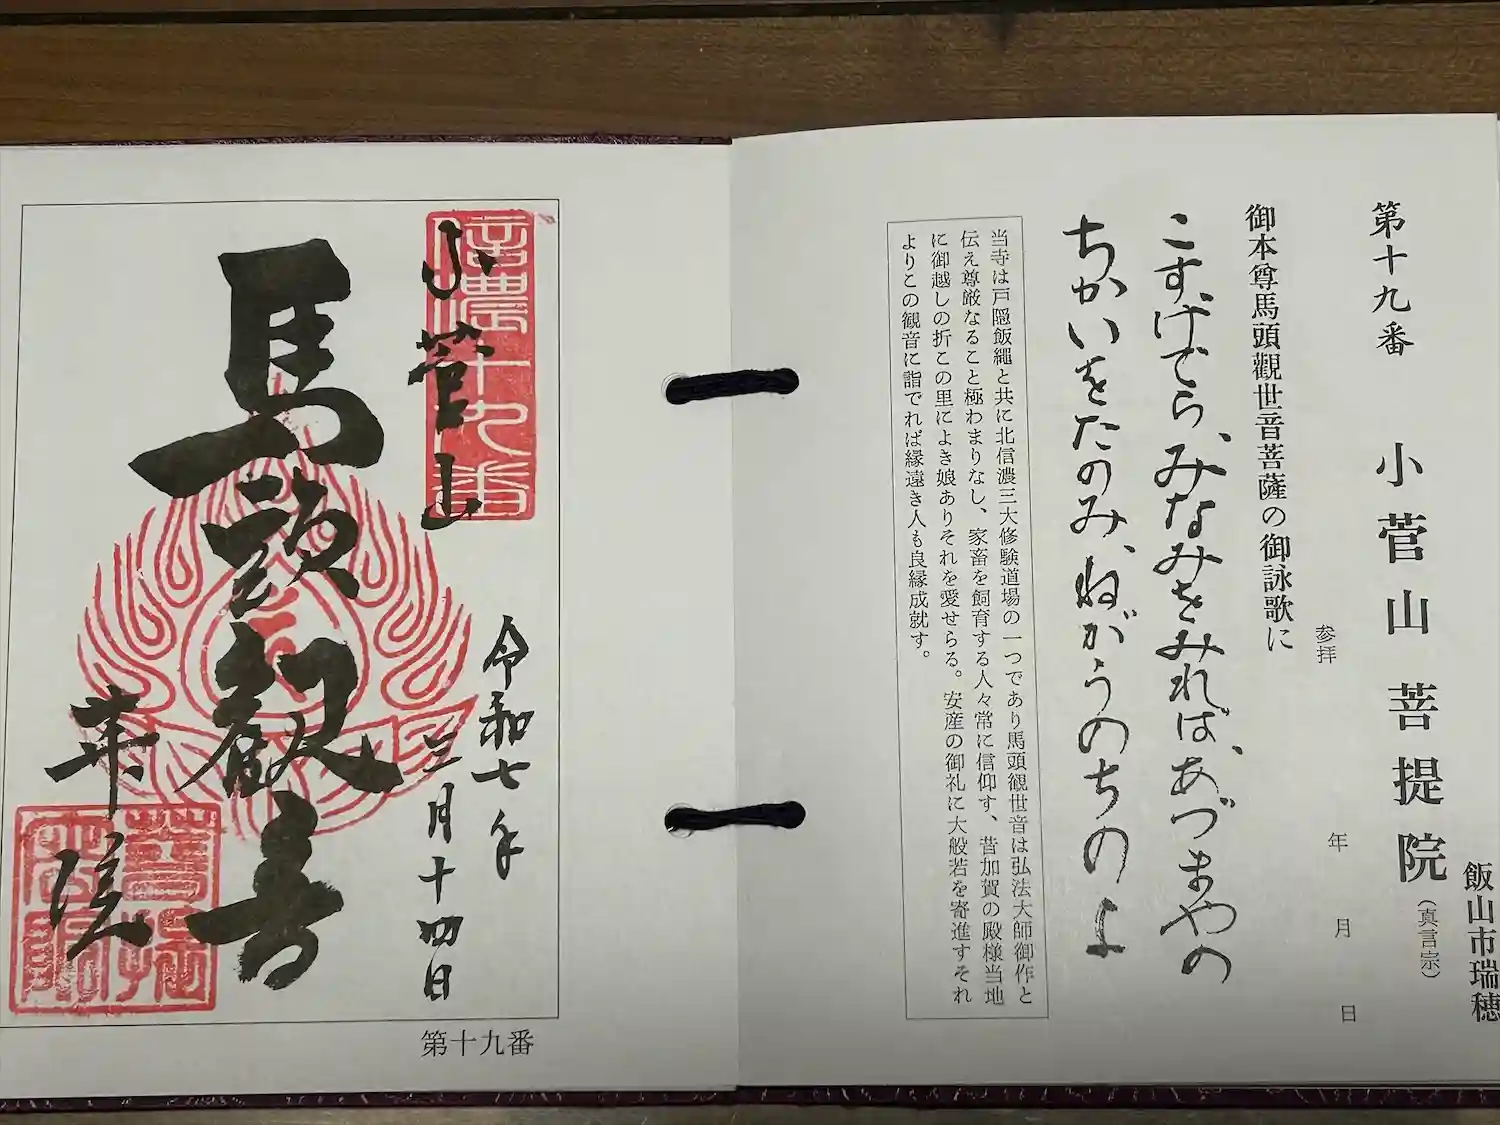 飯山市瑞穂
第十九番 小菅山 菩提院（真言宗）
参拝 年 月 日
御本尊馬頭觀世音菩薩の御詠歌に
こすげでら、みなみをみれば、あづまやの
ちかいをたのみ、ねがうのちのよ
当寺は戸隠飯繩と共に北信濃三大修験道場の一つであり馬頭観世音は弘法大師御作と
伝え尊厳なること極わまりなし、家畜を飼育する人々常に信仰す、昔加賀の殿様当地
に御越しの折この里によき娘ありそれを愛せらる。安産の御礼に大般若を寄進すそれ
よりこの観音に詣でれば縁遠き人も良縁成就す。
信濃十九番
小菅山
令和七年
三月十四日
馬頭観音
院
菩提
院印
第十九番